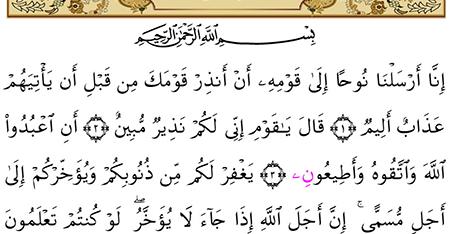 بِسْمِ ٱللَّهِ ٱلرَّحْمَٰنِ ٱلرَّحِيمِ
إِنَّا أَرْسَلْنَا نُوحًا إِلَىٰ قَوْمِهِۦ أَنْ أَنذِرْ قَوْمَكَ مِن قَبْلِ أَن يَأْتِيَهُمْ
عَذَابٌ أَلِيمٌ ﴿١﴾ قَالَ يَٰقَوْمِ إِنِّى لَكُمْ نَذِيرٌ مُّبِينٌ ﴿٢﴾ أَنِ ٱعْبُدُوا۟
ٱللَّهَ وَٱتَّقُوهُ وَأَطِيعُونِۦ ﴿٣﴾ يَغْفِرْ لَكُم مِّن ذُنُوبِكُمْ وَيُؤَخِّرْكُمْ إِلَىٰٓ
أَجَلٍ مُّسَمًّى ۚ إِنَّ أَجَلَ ٱللَّهِ إِذَا جَآءَ لَا يُؤَخَّرُ ۖ لَوْ كُنتُمْ تَعْلَمُونَ